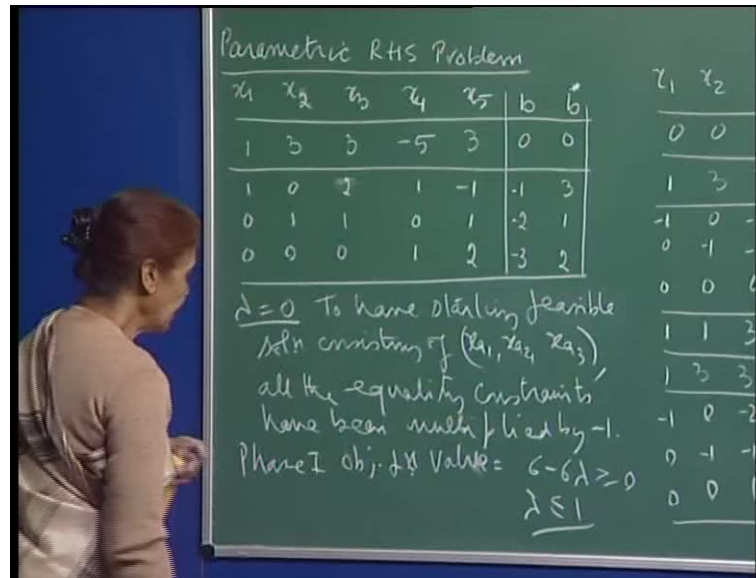 Parametric RHS Problem
x1 x2 x3 x4 x5 b b*
1 3 3 -5 3 0 0
1 0 2 1 -1 -1 3
0 1 1 0 1 -2 1
0 0 0 1 2 -3 2
λ=0 To have starting feasible
soln consisting of (xa1, xa2, xa3),
all the equality constraints
have been multiplied by -1.
Phase I Obj. fn Value = 6-6λ ≥ 0
λ ≤ 1
x1 x2
0 0
1 3
-1 0
0 -1
0 0 0
1 1 3
1 3 3
-1 0
0 -1 -1
0 0